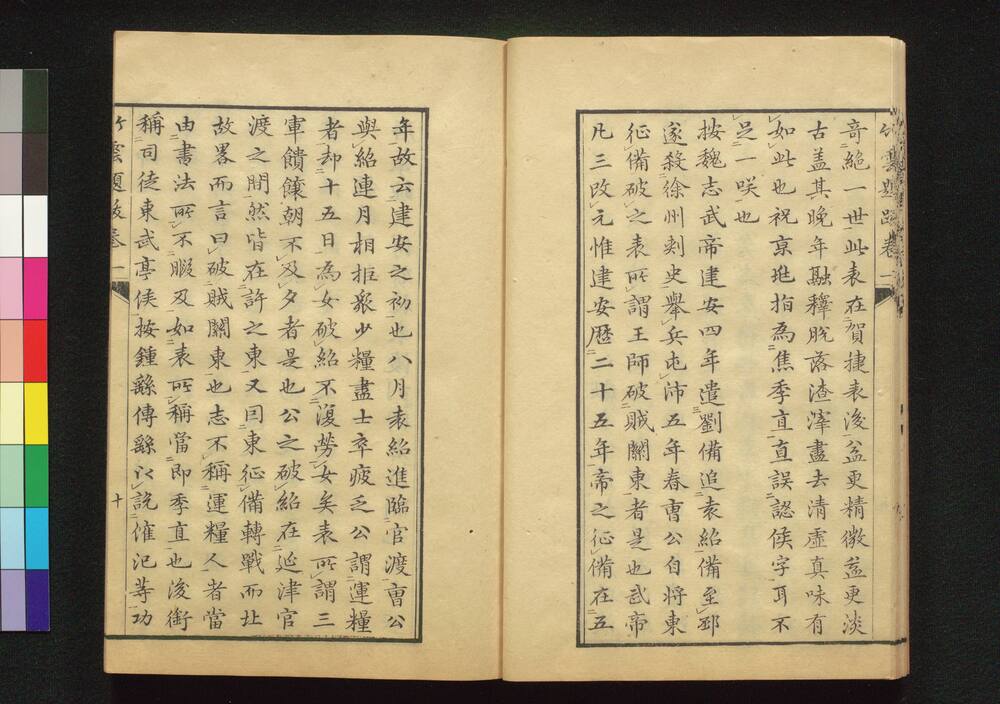 竹雲題跋卷一
竒絕一世此表在賀捷表後益更精微益更淡
古盖其晚年融釋脫落渣滓盡去清虛真味有
如此也祝京兆指為焦季直直誤認侯字耳不
足一咲也
按魏志武帝建安四年遣劉備追袁紹備至邳
遂殺徐州刺史舉兵屯沛五年春曹公自將東
征備破之表所謂王師破賊關東者是也武帝
凡三改元惟建安歷二十五年帝之征備在五
年故云建安之初也八月袁紹進臨官渡曹公
與紹連月相拒衆少糧盡士卒疲乏公謂運糧
者却十五日為女破紹不復勞女矣表所謂三
軍饋饟朝不及夕者是也公之破紹在延津官
渡之間然皆在許之東又曰東征備轉戰而北
故畧而言曰破賊關東也志不稱運糧人者當
由書法所不暇及如表所稱當即季直也後銜
稱司徒東武亭侯按鍾繇傳繇以說傕汜等功
竹雲題跋卷一
十